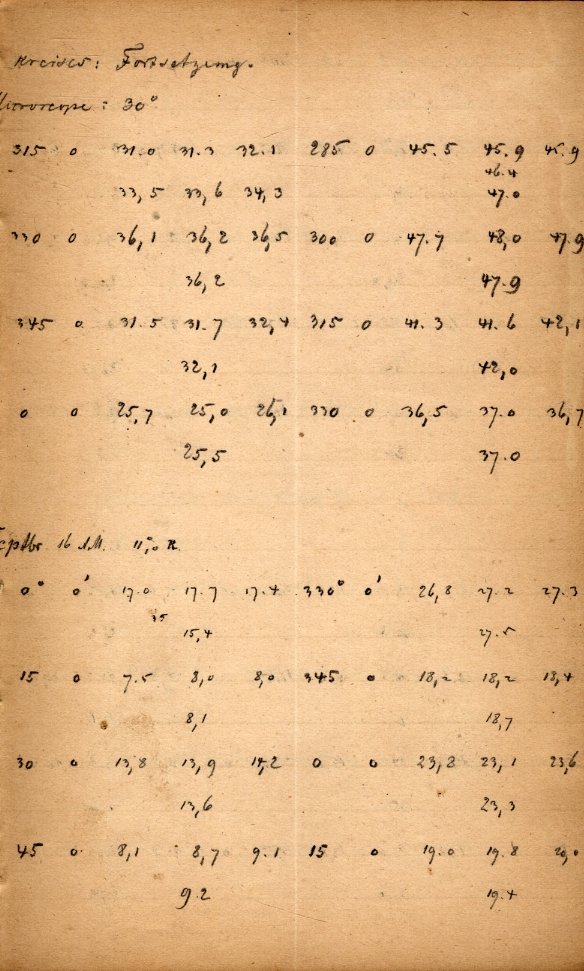 Kreises: Fortsetzung.
Microscope: 30°
315 0 31.0 31.3 32.1 285 0 45.5 45.9 45.9
46.4
33,5 33,6 34,3 47.0
330 0 36,1 36,2 36,5 300 0 47.7 48,0 47.9
36,2 47.9
345 0 31.5 31.7 32,4 315 0 41.3 41.6 42,1
32,1 42,0
0 0 25,7 25,0 26,1 330 0 36,5 37.0 36,7
25,5 37.0
Septbr 16 A.M. 11°,0 R
0° 0' 17.0 17.7 17.4 330° 0' 26,8 27.2 27.3
15,4 27.5
15 0 7.5 8,0 8,0 345 0 18,2 18,2 18,4
8,1 18,7
30 0 13,8 13,9 14,2 0 0 23,8 23,1 23,6
13,6 23,3
45 0 8,1 8,7 9.1 15 0 19.0 19.8 20,0
9.2 19.4